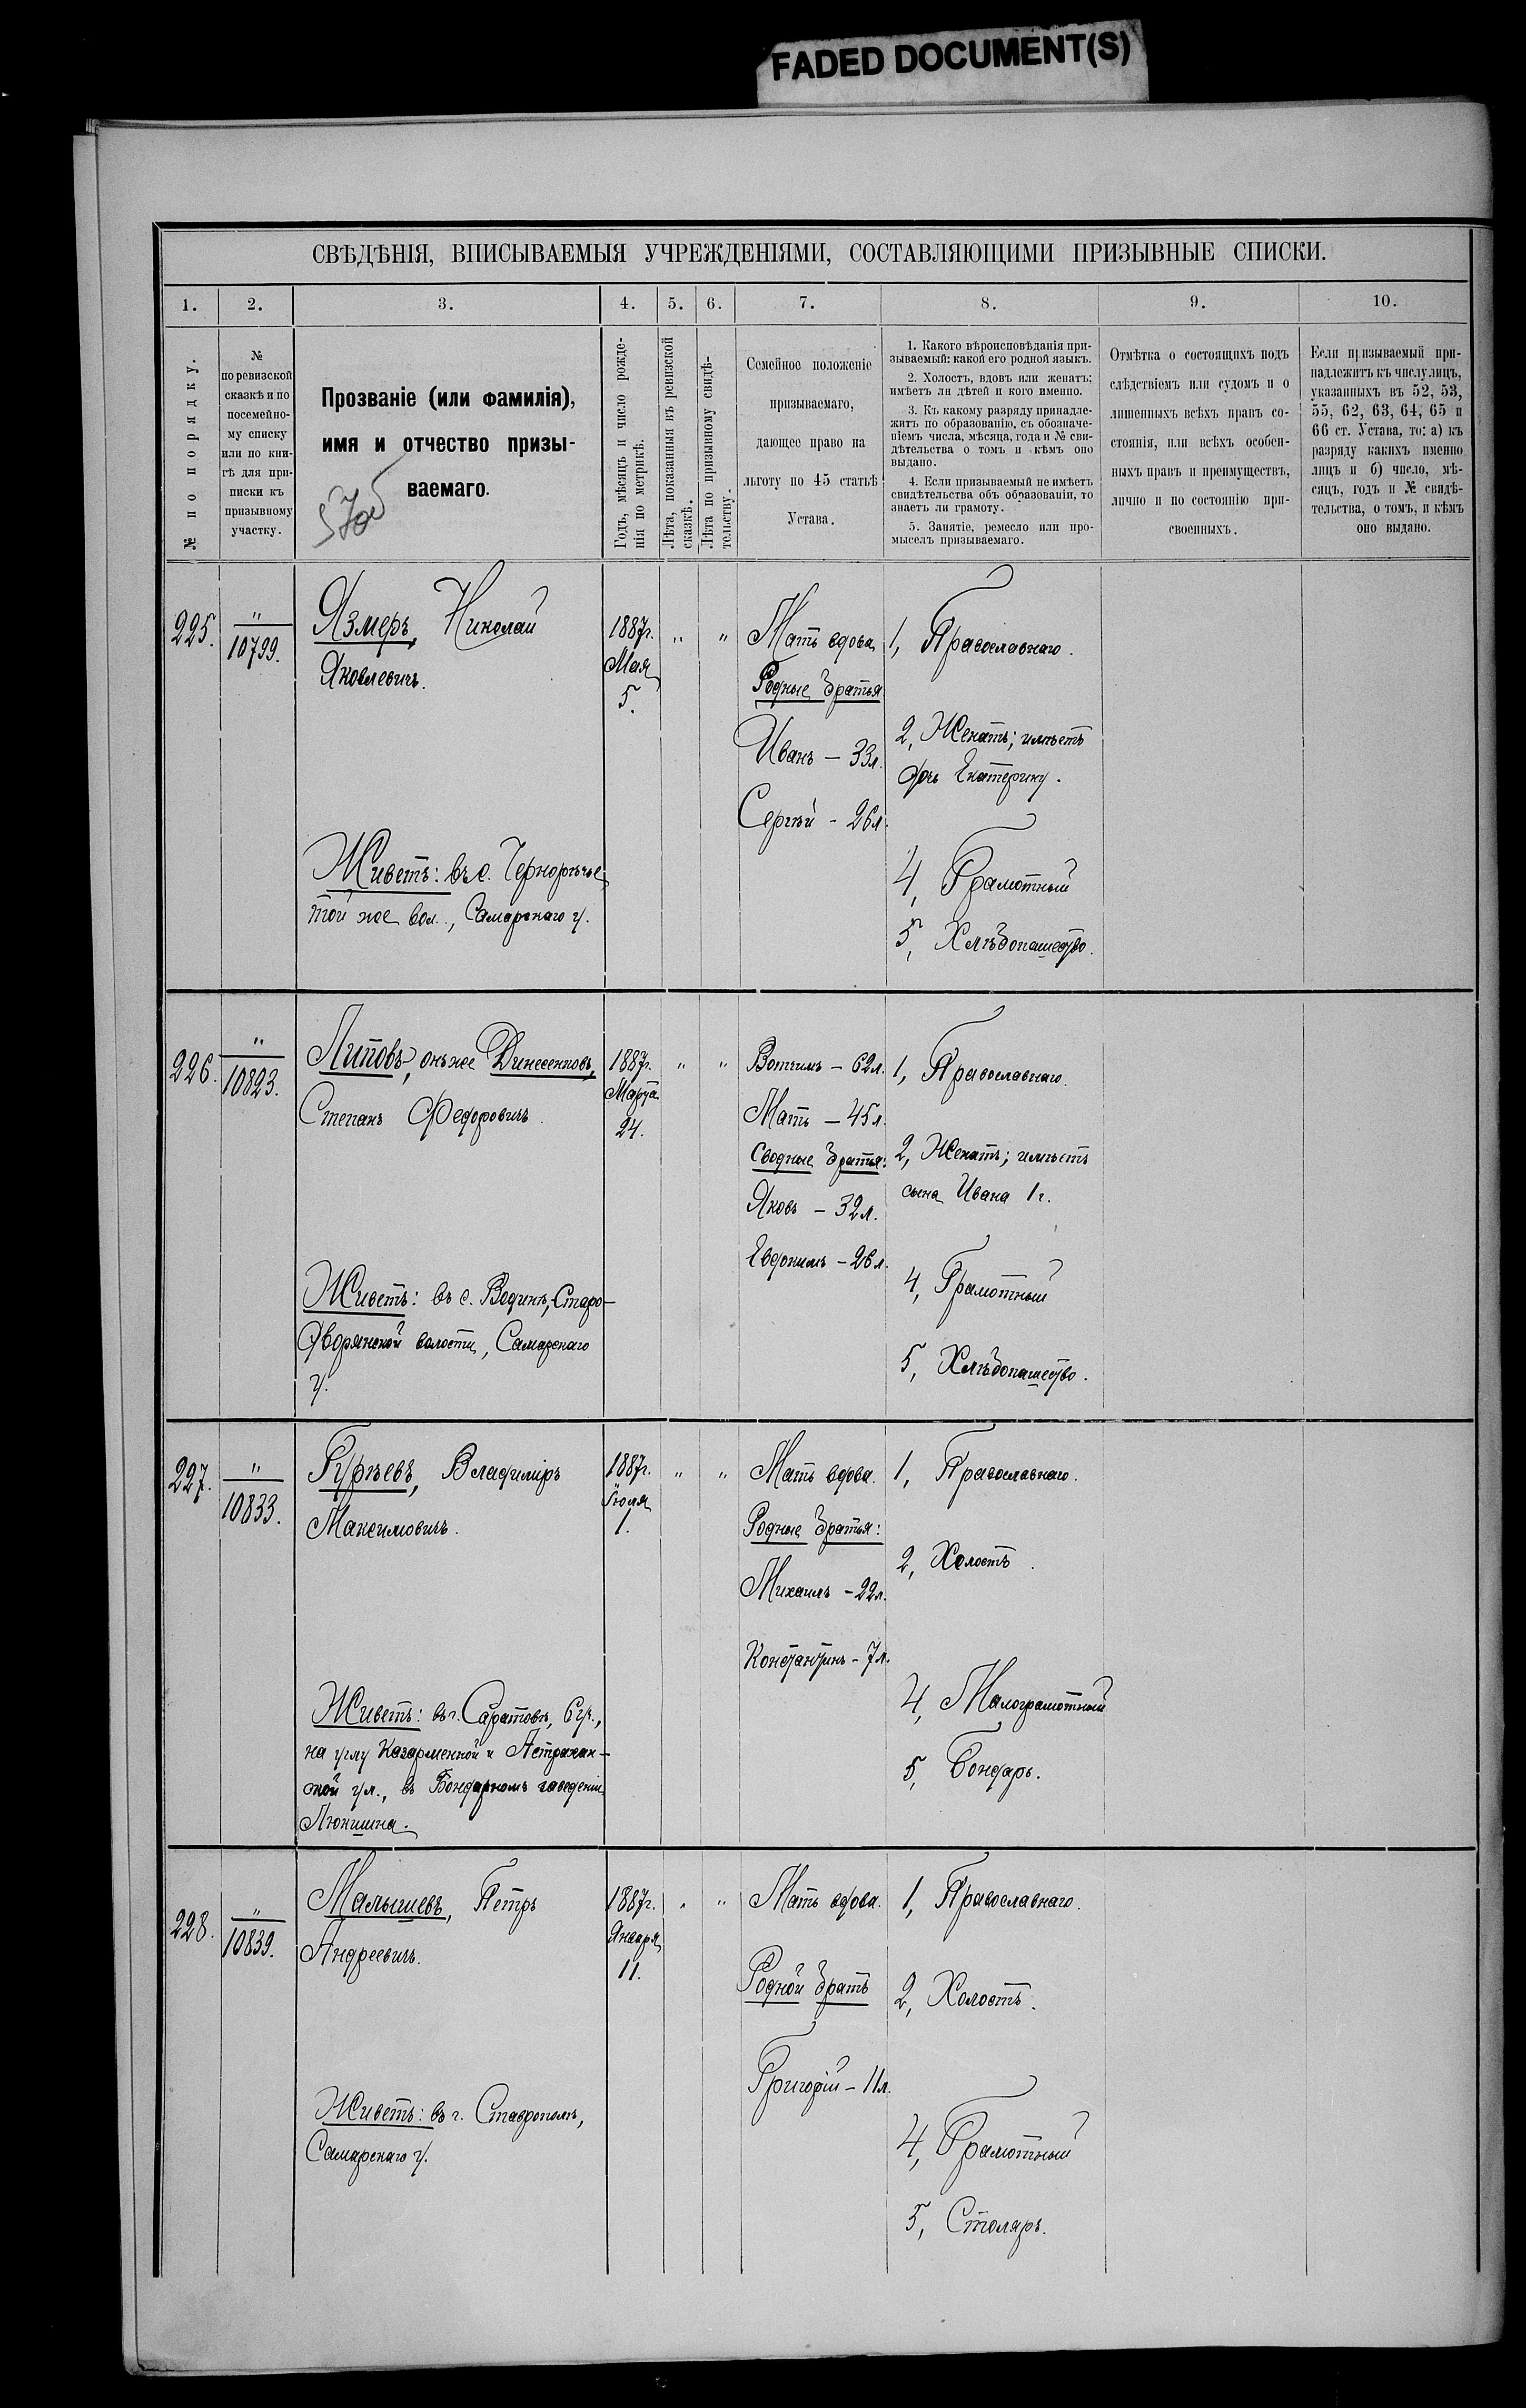 FADED DOCUMENT(S)
СВѢДѢНІЯ, ВПИСЫВАЕМЫЯ УЧРЕЖДЕНІЯМИ, СОСТАВЛЯЮЩИМИ ПРИЗЫВНЫЕ СПИСКИ.
1. 2. 3. 4. 5. 6. 7. 8. 9. 10.
№ по порядку.
№
по ревизской
сказкѣ и по
посемейно-
му списку
или по кни-
гѣ для при-
писки къ
призывному
участку.
Прозваніе (или фамилія),
имя и отчество призы-
ваемаго.
Годъ, мѣсяцъ и число рожде-
нія по метрикѣ.
Лѣта, показанныя въ ревизской
сказкѣ.
Лѣта по призывному свидѣ-
тельству.
Семейное положеніе
призываемаго,
дающее право на
льготу по 45 статьѣ
Устава.
1. Какого вѣроисповѣданія при-
зываемый: какой его родной языкъ.
2. Холостъ, вдовъ или женатъ;
имѣетъ ли дѣтей и кого именно.
3. Къ какому разряду принадле-
житъ по образованію, съ обозначе-
ніемъ числа, мѣсяца, года и № сви-
дѣтельства о томъ и кѣмъ оно
выдано.
4. Если призываемый не имѣетъ
свидѣтельства объ образованіи, то
знаетъ ли грамоту.
5. Занятіе, ремесло или про-
мыселъ призываемаго.
Отмѣтка о состоящихъ подъ
слѣдствіемъ или судомъ и о
лишенныхъ всѣхъ правъ со-
стоянія, или всѣхъ особен-
ныхъ правъ и преимуществъ,
лично и по состоянію при-
своенныхъ.
Если призываемый при-
надлежитъ къ числу лицъ,
указанныхъ въ 52, 53,
55, 62, 63, 64, 65 и
66 ст. Устава, то: а) къ
разряду какихъ именно
лицъ и б) число, мѣ-
сяцъ, годъ и № свидѣ-
тельства, о томъ, и кѣмъ
оно выдано.
225.
"
10799.
Язмеръ, Николай
Яковлевичъ.
Живетъ: въ с. Чернорѣчье
той же вол., Самарскаго у.
1887г.
Мая
5.
" "
Мать вдова
Родные братья
Иванъ – 33л.
Сергѣй - 26л.
1, Православнаго.
2, Женатъ; имѣетъ
дочь Екатерину.
4, Грамотный
5, Хлѣбопашество.
226.
"
10823.
Липовъ, онъ же
Степанъ Федоровичъ.
Живетъ: въ с. Водинѣ, Старо-
Дворянской волости, Самарскаго
у.
1887г.
Марта
24.
" "
Вотчимъ – 62л.
Мать – 45л.
Сводные братья:
Яковъ – 32л.
Евдокимъ – 26л.
1, Православнаго.
2, Женатъ; имѣетъ
сына Ивана 1г.
4, Грамотный
5, Хлѣбопашество.
227.
"
10833.
Гурѣевъ, Владиміръ
Максимовичъ.
Живетъ: въ г. Саратовѣ, 6 уч.,
на углу Казарменной и Астрахан-
ской ул., въ Бондарномъ заведеніи
Люкшина.
1887г.
Іюля
1.
" "
Мать вдова.
Родные братья:
Михаилъ – 22л.
Константинъ – 7л.
1, Православнаго.
2, Холостъ.
4, Малограмотный
5, Бондарь.
228.
"
10839.
Малышевъ, Петръ
Андреевичъ.
Живетъ: въ г. Ставрополѣ,
Самарскаго у.
1887г.
Января
11.
" "
Мать вдова.
Родной братъ
Григорій – 11л.
1, Православнаго.
2, Холостъ.
4, Грамотный
5, Столяръ.